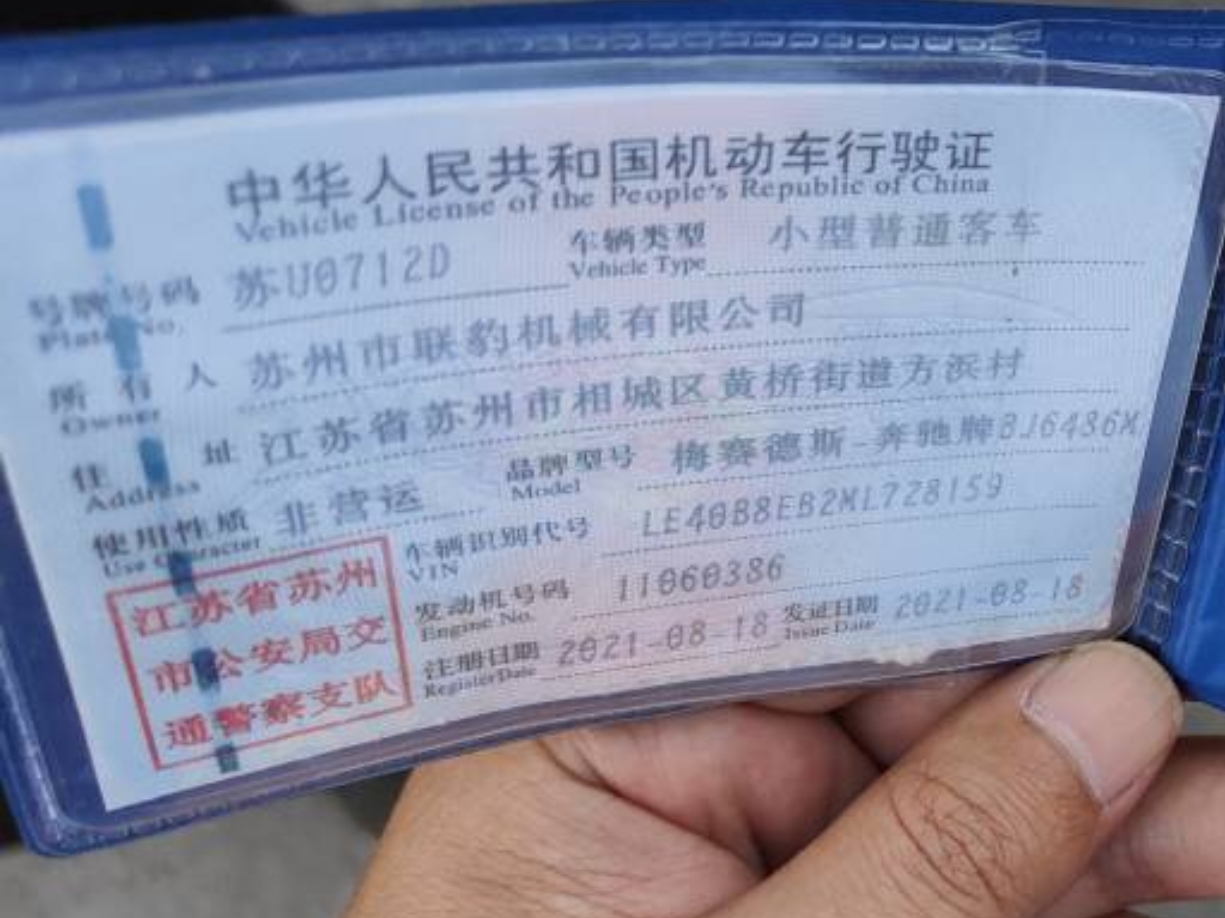 中华人民共和国机动车行驶证
Vehicle License of the People's Republic of China
号牌号码 苏U0712D 车辆类型 小型普通客车
Plate No. Vehicle Type
所有人 苏州市联豹机械有限公司
Owner
住址 江苏省苏州市相城区黄桥街道方浜村
Address
使用性质 非营运 品牌型号 梅赛德斯-奔驰牌BJ6486M
Use Character Model
车辆识别代号 LE40B8EB2ML728159
VIN
发动机号码 11060386
Engine No.
注册日期 2021-08-18 发证日期 2021-08-18
Register Date Issue Date
江苏省苏州
市公安局交
通警察支队